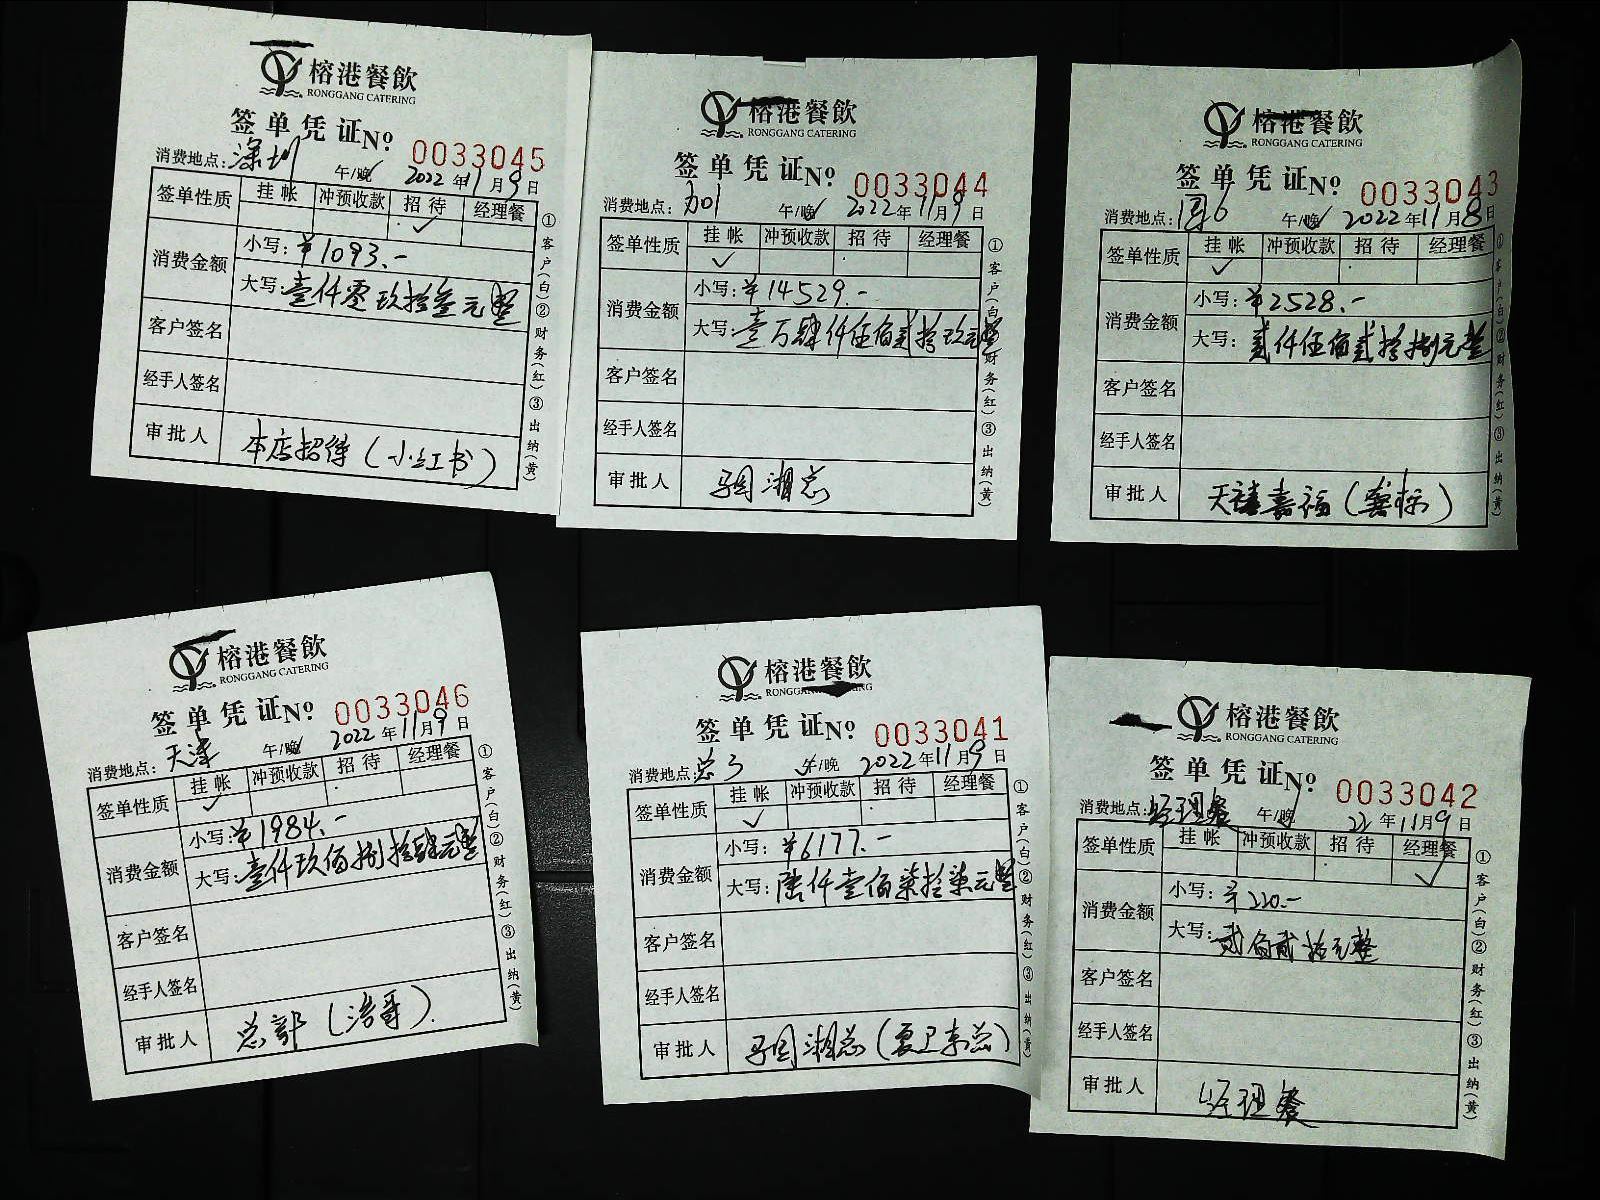 榕港餐飲
RONGGANG CATERING
签单凭证No 0033045
消费地点:深圳 午/晚 2022年11月9日
签单性质 挂帐 冲预收款 招待 经理餐
✓
消费金额 小写:¥1093.-
大写:壹仟零玖拾叁元整
客户签名
经手人签名
审批人 本店招待(小红书)
①客户(白)②财务(红)③出纳(黄)
榕港餐飲
RONGGANG CATERING
签单凭证No 0033044
消费地点:加1 午/晚 2022年11月9日
签单性质 挂帐 冲预收款 招待 经理餐
✓
消费金额 小写:¥14529.-
大写:壹万肆仟伍佰贰拾玖元整
客户签名
经手人签名
审批人 马国湘总
①客户(白)②财务(红)③出纳(黄)
榕港餐飲
RONGGANG CATERING
签单凭证No 0033043
消费地点: 6 午/晚 2022年11月8日
签单性质 挂帐 冲预收款 招待 经理餐
✓
消费金额 小写:¥2528.-
大写:贰仟伍佰贰拾捌元整
客户签名
经手人签名
审批人 天禧嘉福(龚标)
①客户(白)②财务(红)③出纳(黄)
榕港餐飲
RONGGANG CATERING
签单凭证No 0033046
消费地点:天泽 午/晚 2022年11月9日
签单性质 挂帐 冲预收款 招待 经理餐
✓
消费金额 小写:¥1984.-
大写:壹仟玖佰捌拾肆元整
客户签名
经手人签名
审批人 总部(涪哥).
①客户(白)②财务(红)③出纳(黄)
榕港餐飲
RONGGANG CATERING
签单凭证No 0033041
消费地点:总3 午/晚 2022年11月9日
签单性质 挂帐 冲预收款 招待 经理餐
✓
消费金额 小写:¥6177.-
大写:陆仟壹佰柒拾柒元整
客户签名
经手人签名
审批人 马国湘总(夏卫东总)
①客户(白)②财务(红)③出纳(黄)
榕港餐飲
RONGGANG CATERING
签单凭证No 0033042
消费地点:经理餐 午/晚 22年11月9日
签单性质 挂帐 冲预收款 招待 经理餐
✓
消费金额 小写:¥220.-
大写:贰佰贰拾元整
客户签名
经手人签名
审批人 经理餐
①客户(白)②财务(红)③出纳(黄)